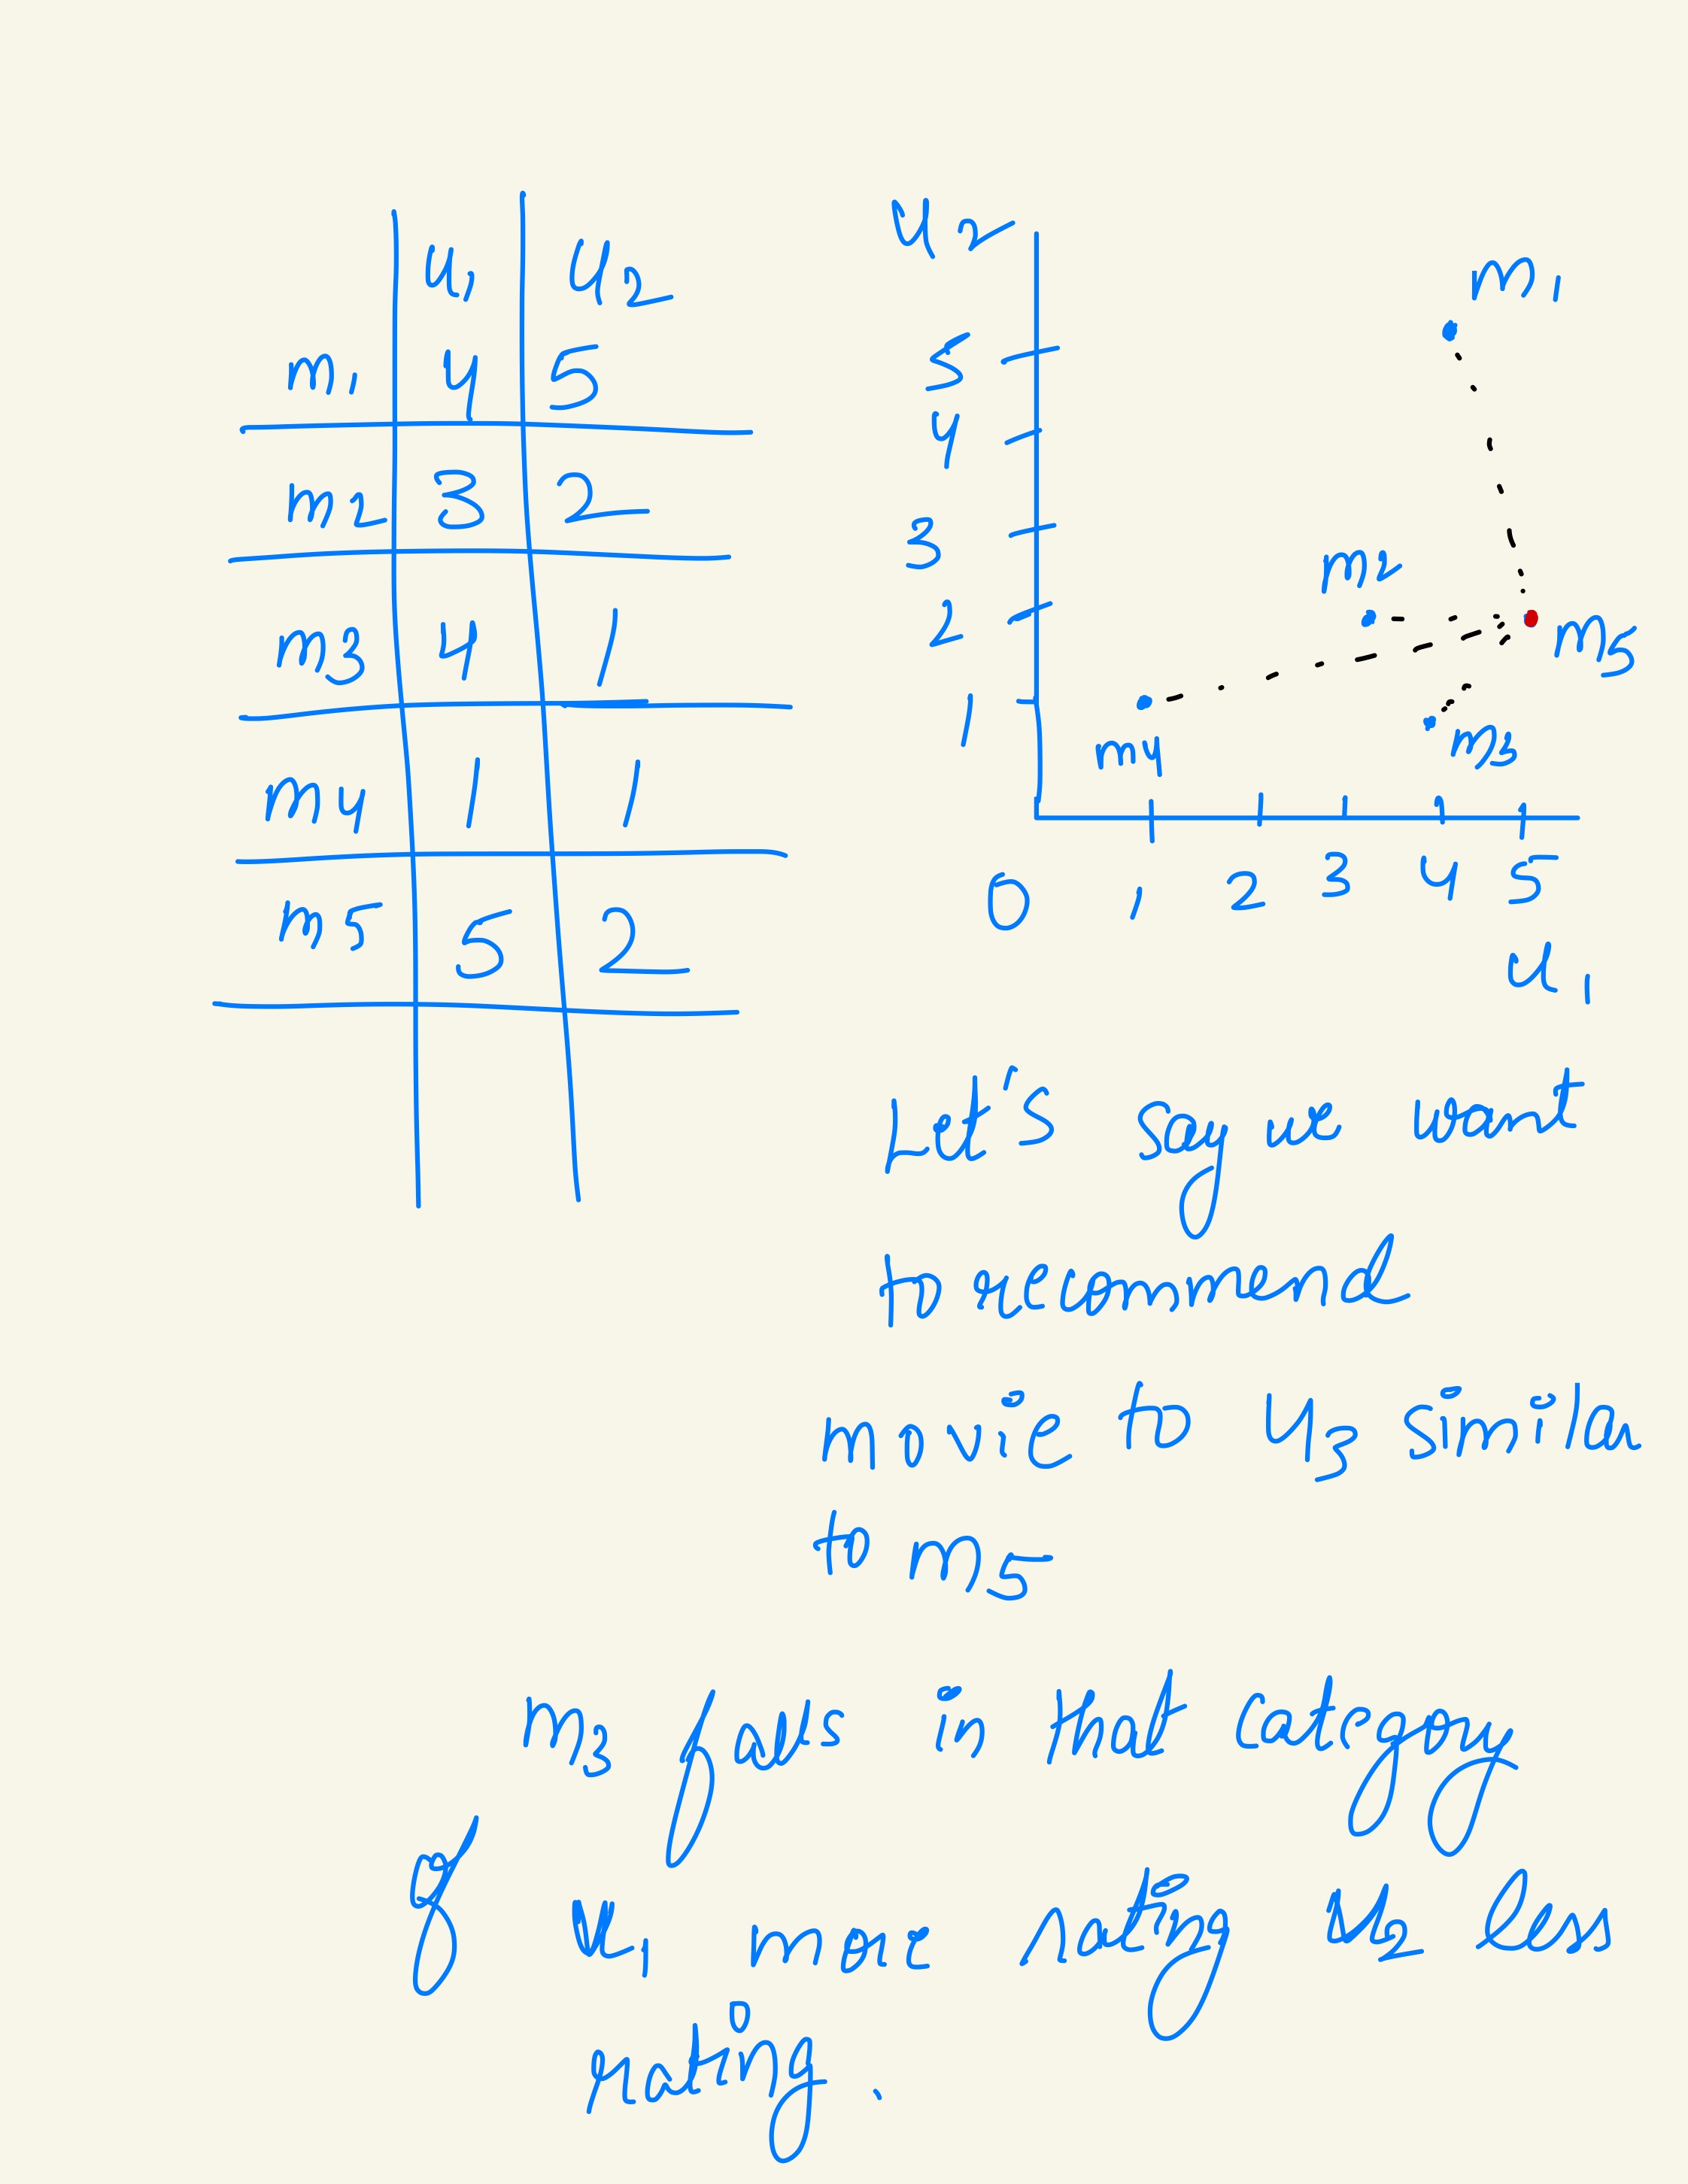 u1 u2
m1 4 5
m2 3 2
m3 4 1
m4 1 1
m5 5 2
u2
5
4
3
2
1
m1
m2
m5
m4
m3
0 1 2 3 4 5
u1
Let's say we want
to recommend
movie to u3 simila
to m5
m3 falls in that category
of u1 more rating u2 less
rating.